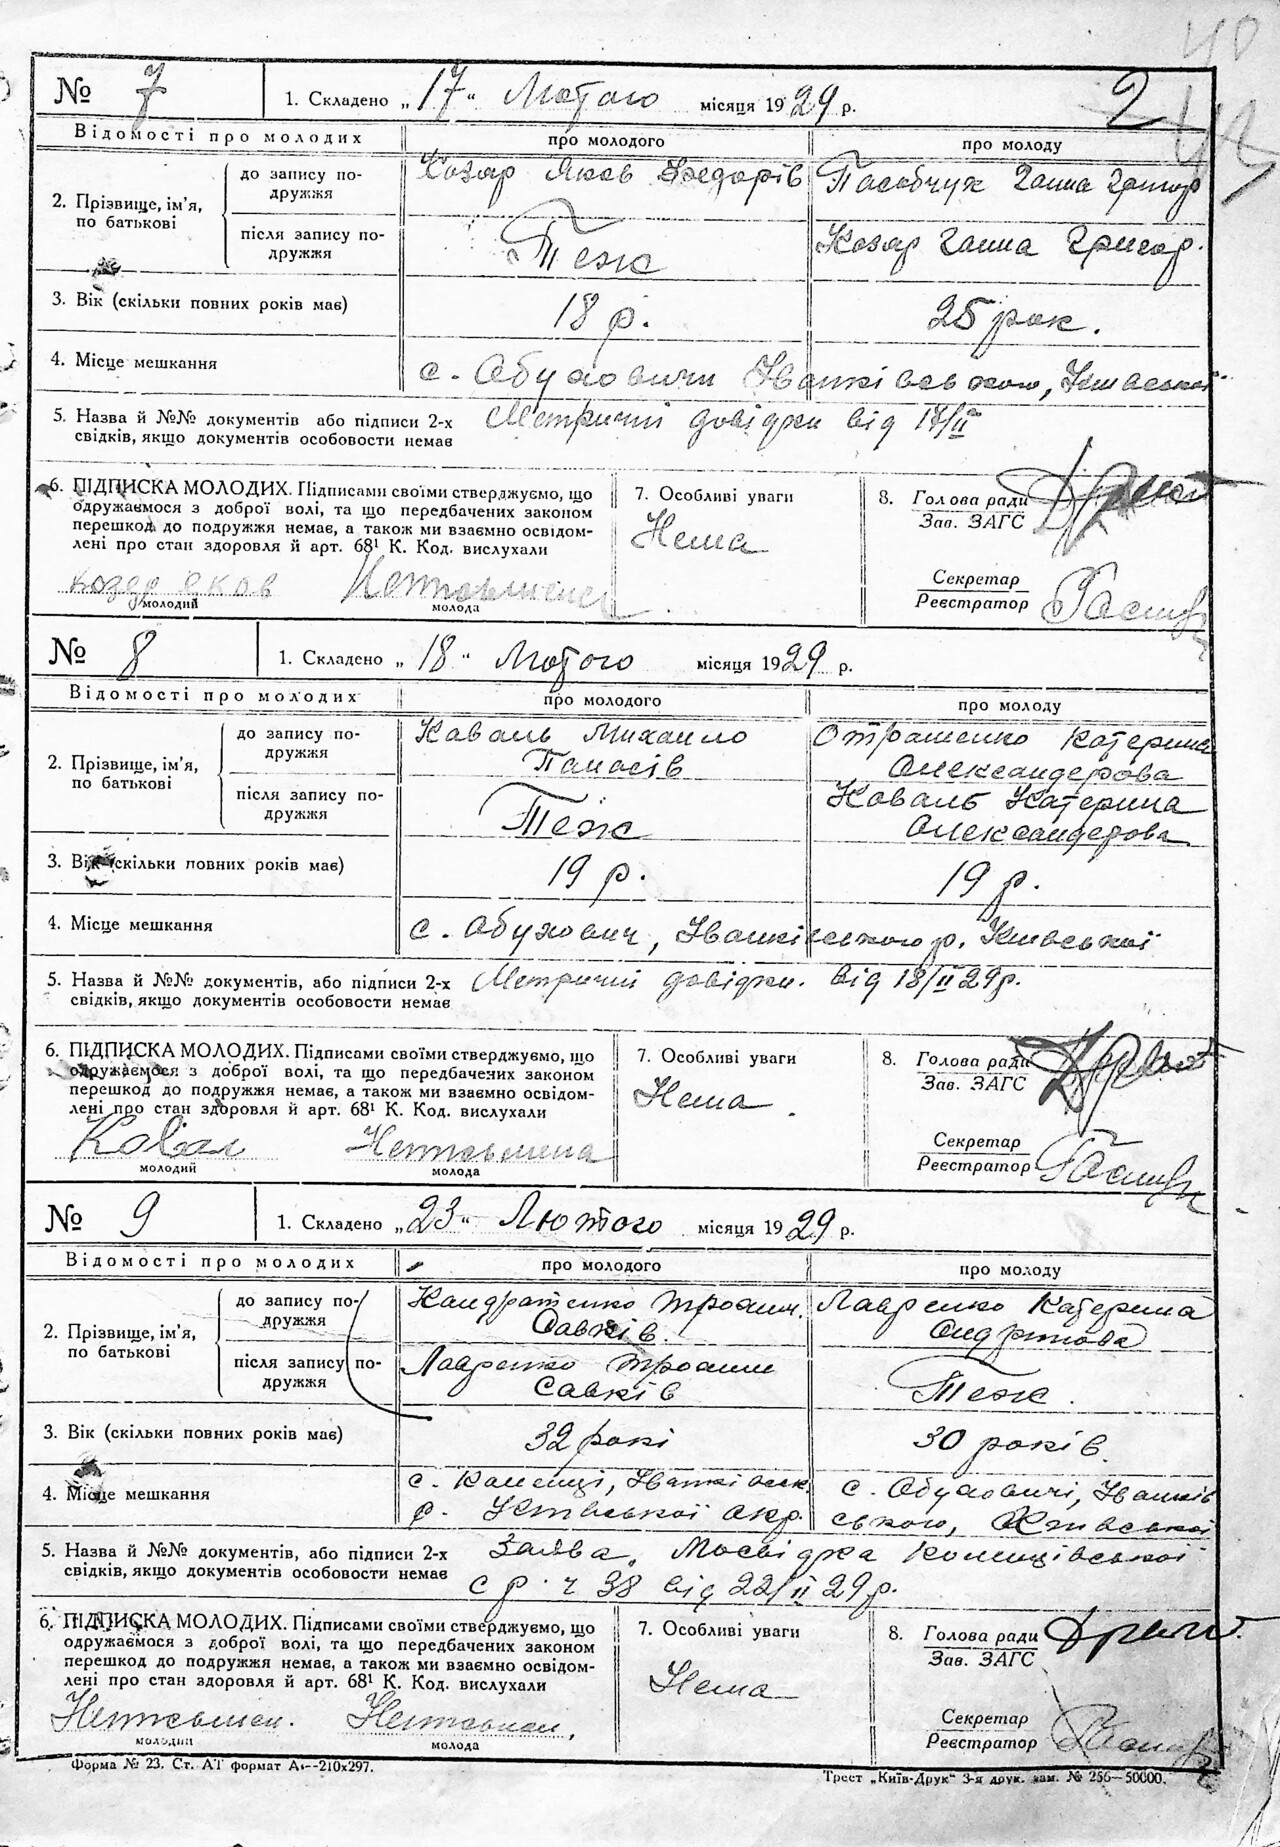 № 7 1. Складено „17“ Лютого місяця 1929 р. 2
Відомості про молодих про молодого про молоду
2. Прізвище, ім'я, по батькові
до запису подружжя Козар Яков Хведорів Пасобчук Ганна Григор
після запису подружжя Теж Козар Ганна Григор.
3. Вік (скільки повних років має) 18 р. 25 рок.
4. Місце мешкання с. Обуховичи Іванківського, Київської
5. Назва й №№ документів або підписи 2-х Метричні довідки від 17/ІІ
свідків, якщо документів особовости немає
6. ПІДПИСКА МОЛОДИХ. Підписами своїми стверджуємо, що
одружаємося з доброї волі, та що передбачених законом
перешкод до подружжя немає, а також ми взаємно освідом-
лені про стан здоровля й арт. 68¹ К. Код. вислухали
Козер Яков Неписьмена
молодий молода
7. Особливі уваги
Нема
8. Голова ради
Зав. ЗАГС
Секретар
Реєстратор
№ 8 1. Складено „18“ Лютого місяця 1929 р.
Відомості про молодих про молодого про молоду
2. Прізвище, ім'я, по батькові
до запису подружжя Коваль Михайло Отрошенко Катерина
Панасів Олександерова
після запису подружжя Теж Коваль Катерина
Олександерова
3. Вік (скільки повних років має) 19 р. 19 р.
4. Місце мешкання с. Обухович, Іванківського р. Київської
5. Назва й №№ документів, або підписи 2-х Метричні довідки. від 18/ІІ 29 р.
свідків, якщо документів особовости немає
6. ПІДПИСКА МОЛОДИХ. Підписами своїми стверджуємо, що
одружаємося з доброї волі, та що передбачених законом
перешкод до подружжя немає, а також ми взаємно освідом-
лені про стан здоровля й арт. 68¹ К. Код. вислухали
Коваль Неписьмена
молодий молода
7. Особливі уваги
Нема.
8. Голова ради
Зав. ЗАГС
Секретар
Реєстратор
№ 9 1. Складено „23“ Лютого місяця 1929 р.
Відомості про молодих про молодого про молоду
2. Прізвище, ім'я, по батькові
до запису подружжя Кондратенко Трохим. Лавренко Катерина
Савків. Андріїова
після запису подружжя Лавренко Трохим Теж.
Савків
3. Вік (скільки повних років має) 32 рокі 30 років.
4. Місце мешкання с. Коленці, Іванківськ. с. Обуховичі, Іванків
р. Київської окр. ського, Київської
5. Назва й №№ документів, або підписи 2-х Заява. Посвідка Коленцівської
свідків, якщо документів особовости немає с р. ч 38 від 22/ІІ 29 р.
6. ПІДПИСКА МОЛОДИХ. Підписами своїми стверджуємо, що
одружаємося з доброї волі, та що передбачених законом
перешкод до подружжя немає, а також ми взаємно освідом-
лені про стан здоровля й арт. 68¹ К. Код. вислухали
Неписьмен. Неписьмен.
молодий молода
7. Особливі уваги
Нема
8. Голова ради
Зав. ЗАГС
Секретар
Реєстратор
Форма № 23. Ст. АТ формат А₄--210х297. Трест „Київ-Друк“ 3-я друк. зам. № 256—50000.